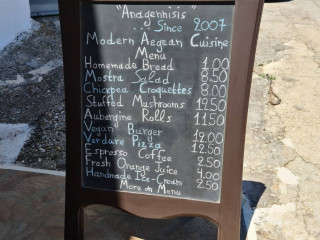 "Anagennisis"
... Since 2007
Modern Aegean Cuisine
Menu
Homemade Bread 1.00
Mostra Salad 8.50
Chickpea Croquettes 8.00
Stuffed Mushrooms
Aubergine Rolls 11.50
Vegan Burger
Verdure Pizza
Espresso Coffee 2.50
Fresh Orange Juice 4.00
Handmade Ice-Cream 2.50
More on Menu